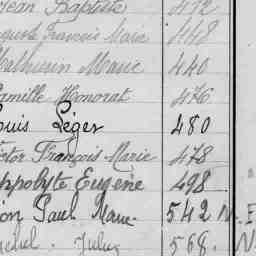 Jean Baptiste 472
Francis Marie 448
Mathurin Marie 440
Camille Honorat 476
Louis Léger 480
Victor François Marie 478
Hippolyte Eugène 498
Paul Marie 542 N.
Michel Jules 568 N